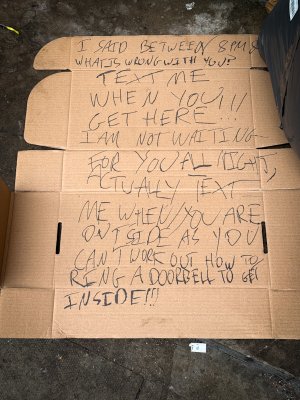 I SAID BETWEEN 8PM &
WHAT IS WRONG WITH YOU?
TEXT ME
WHEN YOU!!!
GET HERE...
I AM NOT WAITING
FOR YOU ALL NIGHT,
ACTUALLY TEXT
ME WHEN YOU ARE
OUTSIDE AS YOU
CAN'T WORK OUT HOW TO
RING A DOORBELL TO GET
INSIDE!!!